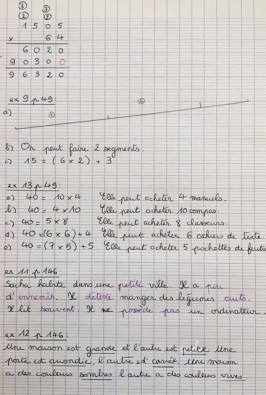 ③ ③
① ②
1 5 0 5
× 6 4
6 0 2 0
9 0 3 0 0
9 6 3 2 0
ex 9 p 49
a) ① ②
b) On peut faire 2 segments.
c) 15 = (6 × 2) + 3
ex 13 p 49 :
a) 40 = 10 × 4 Elle peut acheter 4
b) 40 = 4 × 10 Elle peut acheter 10 compas.
c) 40 = 5 × 8 Elle peut acheter 8 classeurs.
d) 40 = (6 × 6) + 4 Elle peut acheter 6 cahiers de texte
e) 40 = (7 × 5) + 5 Elle peut acheter 5 pochettes de feutre
ex 11 p 146 :
Sacha habite dans une petite ville. Il a peu
d'ennemis. Il déteste manger des légumes cuits.
Il lit souvent. Il ne possède pas un ordinateur.
ex 12 p 146 :
Une maison est grande et l'autre est petite. Une
porte est arrondie, l'autre est carrée. Une maison
a des couleurs sombres l'autre a des couleurs vives.